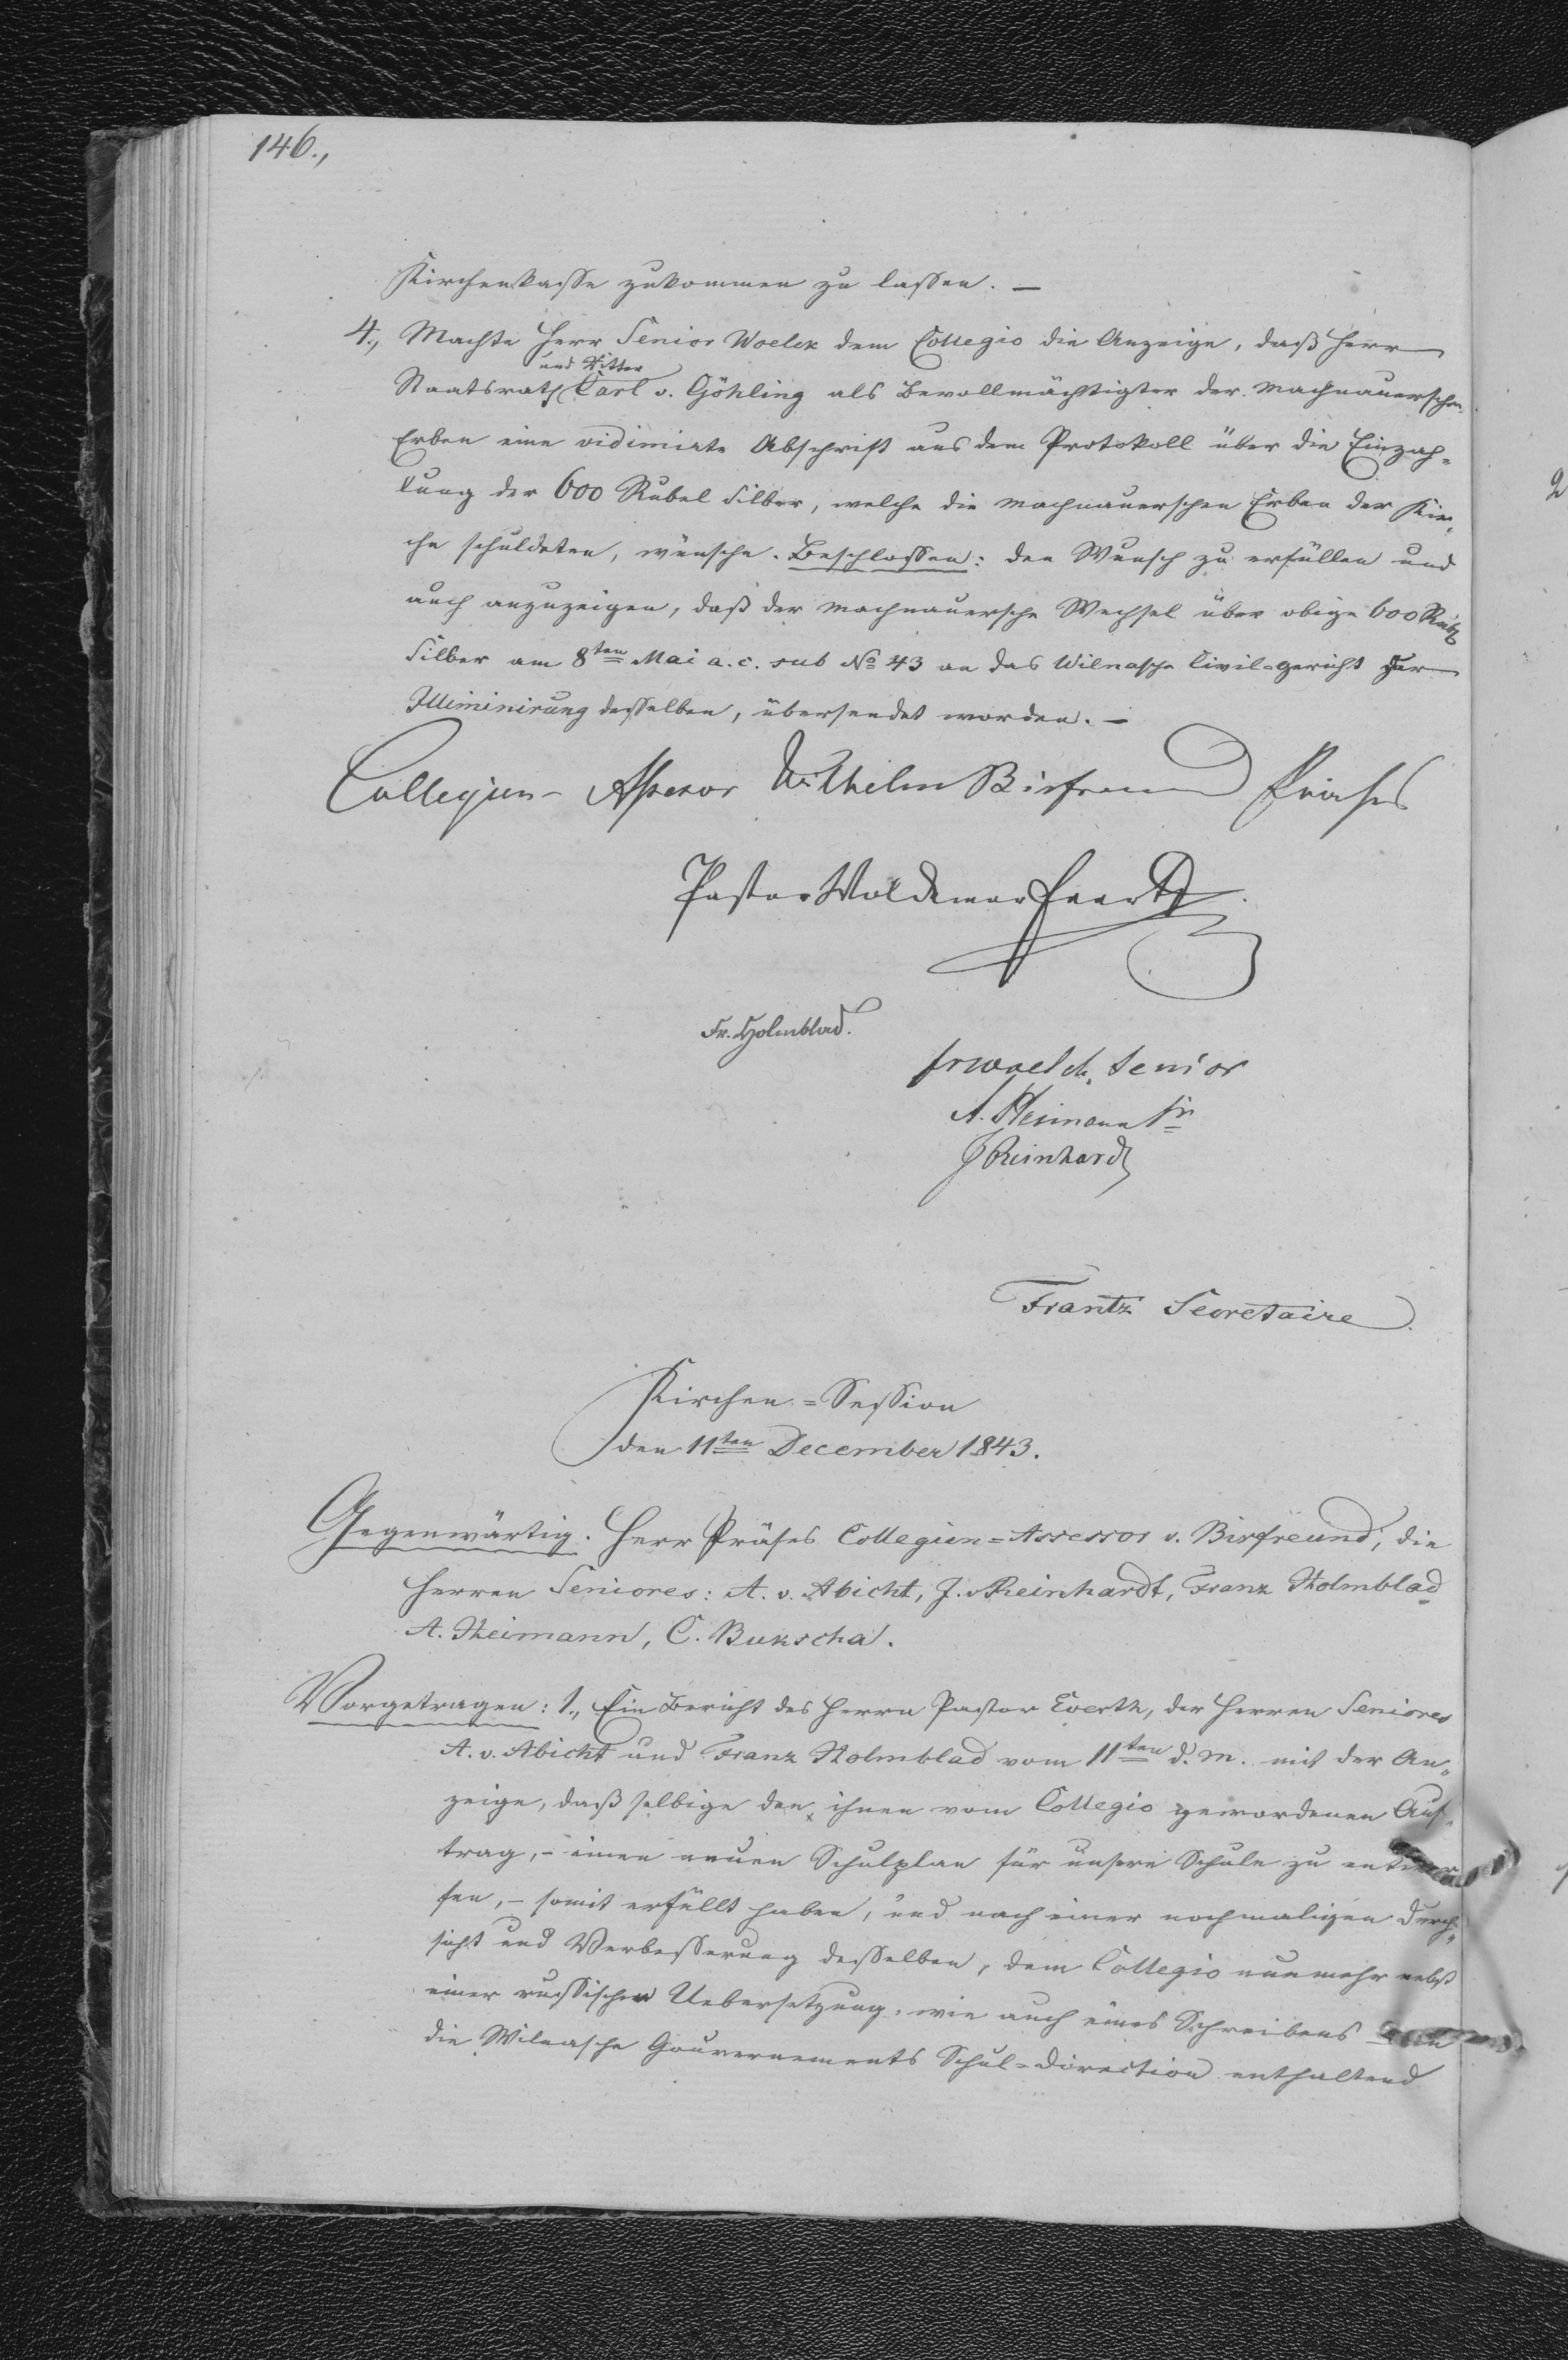 146.,
Kirchenkasse zukommen zu lassen. —
4., Machte Herr Senior Woelck dem Collegio die Anzeige, daß Herr
und Ritter
Staatsrath Carl v. Göhling als Bevollmächtigter der Machnauerschen
Erben eine vidimirte Abschrift aus dem Protokoll über die Einzah=
lung der 600 Rubel Silber, welche die Machnauerschen Erben der Kir=
che schuldeten, wünsche. Beschlossen: den Wunsch zu erfüllen und
auch anzuzeigen, daß der Machnauersche Wechsel über obige 600 Rub
Silber am 8ten Mai a. c. sub No 43 an das Wilnasche Civil=gericht zur
Illiminirung desselben, übersendet worden. —
Collegien- Assessor Wilhelm Birfreund Präses
Pastor Woldemar Everth
Fr. Holmblad.
Fr Woelck, Senior
A. Heimann Sr
J Reinhard
Frantz Secretaire.
Kirchen=Session
den 11ten December 1843.
Gegenwärtig. Herr Präses Collegien=Assessor v. Birfreund; die
Herren Seniores: A. v. Abicht, J. v Reinhardt, Franz Holmblad
A. Heimann, C. Bukscha.
Vorgetragen: 1., Ein Bericht des Herrn Pastor Everth, der Herren Seniores
A. v. Abicht und Franz Holmblad vom 11ten d. M. mit der An=
zeige, daß selbige den ihnen vom Collegio gewordenen Auf=
trag, - einen neuen Schulplan für unsere Schule zu entwer
fen, - somit erfüllt haben, und nach einer nochmaligen Durch=
sicht und Verbesserung desselben, dem Collegio nunmehr nebst
einer russischen Uebersetzung, wie auch eines Schreibens an
die Wilnasche Gouvernements Schul=Direction enthaltend